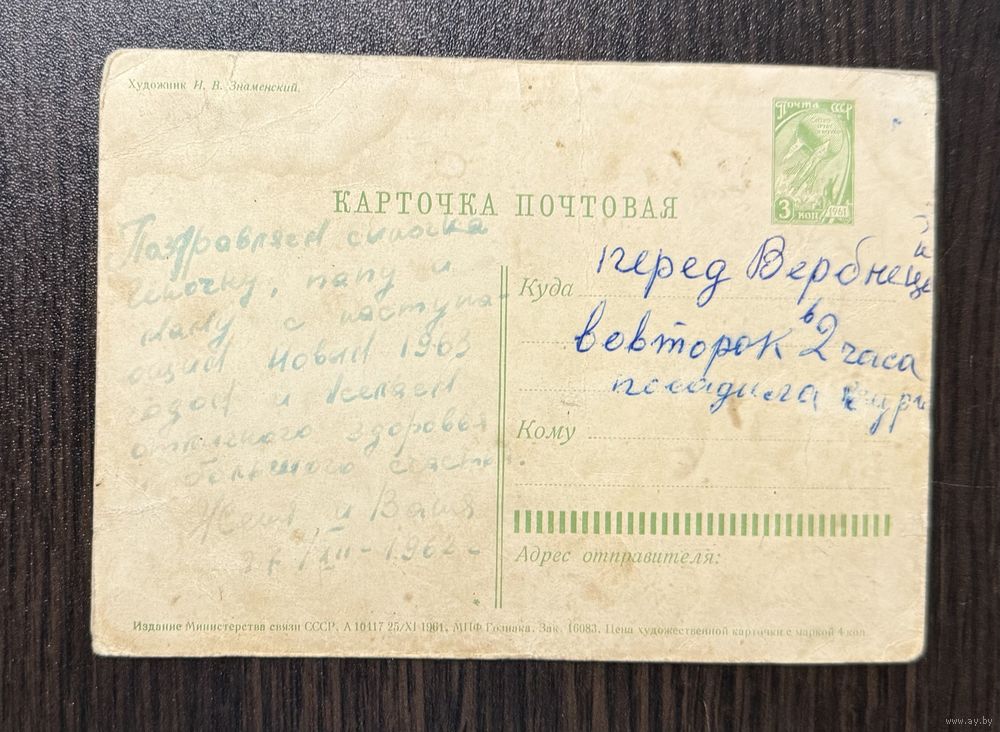 Художник И. В. Знаменский.
Почта СССР
3 коп 1961
КАРТОЧКА ПОЧТОВАЯ
Паздравляем сыночка
папу и
маму с наступа-
ющим Новым 1963
годом и желаем
отличного здоровья
и большого счастья.
Женя и Ваня
27/XII-1962 г
Куда
перед Вербнецей
вовторок в 2 часа
посадила
Кому
Адрес отправителя:
Издание Министерства связи СССР. А 10417 25/XI 1961. МПФ Гознака. Зак. 16083. Цена художественной карточки с маркой 4 коп.
www.ay.by